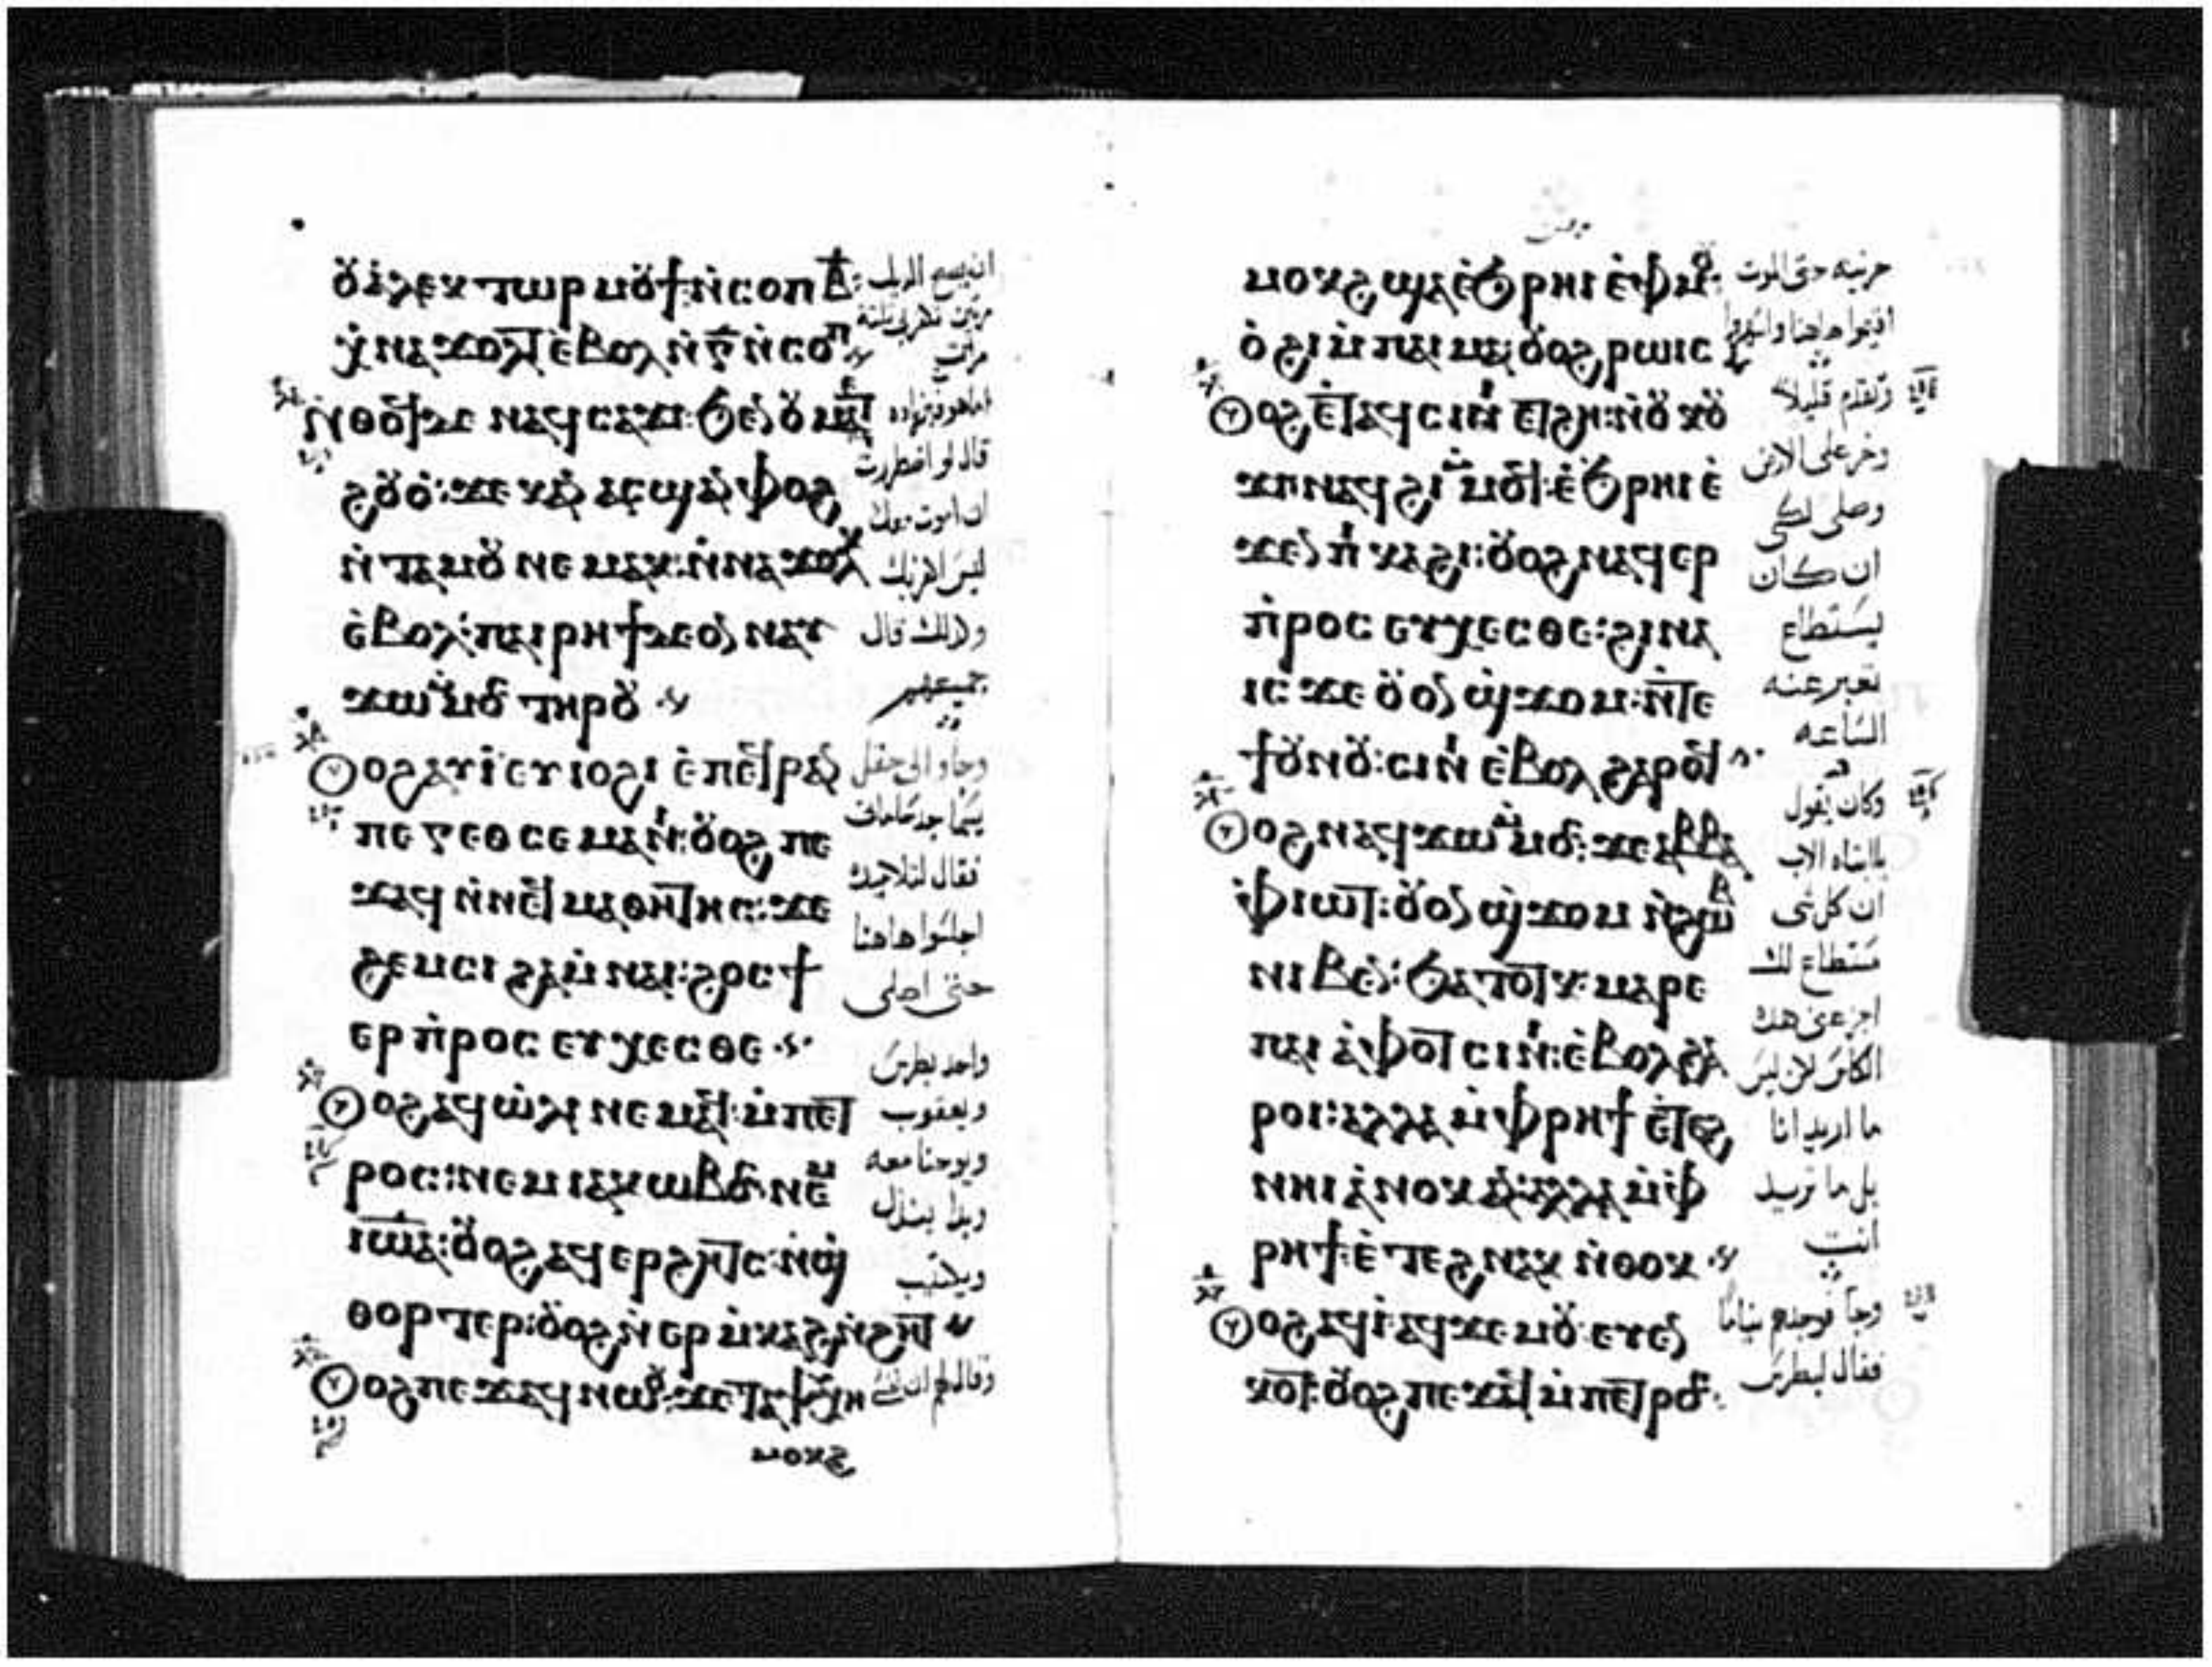 ⲟⲩⲁⲗⲉⲕⲧⲱⲣ ⲙⲟⲩϯ ⲛ̀ⲥⲟⲡ ⲃ̅:
ⲭ̀ⲛⲁϫⲟⲗⲧ ⲉ̀ⲃⲟⲗ ⲛ̀ⲅ̅ ⲛ̀ⲥⲟⲡ
ⲛ̀ⲑⲟϥ ⲇⲉ ⲛⲁϥⲥⲁϫⲓ: ϧⲉⲛ ⲟⲩⲙⲉⲧ
ϩⲟⲩⲟ̀: ϫⲉ ⲕⲁⲛ ⲁⲥϣⲁⲛⲫⲟϩ
ⲛ̀ⲧⲁⲙⲟⲩ ⲛⲉⲙⲁⲕ: ⲛ̀ⲛⲁϫⲟⲗⲕ
ⲉ̀ⲃⲟⲗ: ⲡⲁⲓⲣⲏϯ ⲇⲉ ⲟⲛ ⲛⲁⲩ
ϫⲱ ⲙ̀ⲙⲟⲥ ⲧⲏⲣⲟⲩ
ⲟⲩⲟϩ ⲁⲩⲓ̀ ⲉⲩⲓⲟϩⲓ ⲉ̀ⲡⲉϥⲣⲁⲛ
ⲡⲉ ⲅⲉⲑⲥⲉⲙⲁⲛⲏ: ⲟⲩⲟϩ ⲡⲉ
ϫⲁϥ ⲛ̀ⲛⲉϥⲙⲁⲑⲏⲧⲏⲥ: ϫⲉ
ϩⲉⲙⲥⲓ ϩⲁⲙ̀ⲛⲁⲓ: ϩⲟⲥ ϯ
ⲉⲣⲡ̀ⲣⲟⲥⲉⲩⲭⲉⲥⲑⲉ
ⲟⲩⲟϩ ⲁϥⲱ̀ⲗⲓ ⲛⲉⲙⲁϥ: ⲙ̀ⲡⲉⲧ
ⲣⲟⲥ: ⲛⲉⲙ ⲓⲁⲕⲱⲃⲟⲥ: ⲛⲉⲙ
ⲓⲱⲁ: ⲟⲩⲟϩ ⲁϥⲉⲣϩⲏⲧⲥ: ⲛ̀ϣ
ⲑⲟⲣⲧⲉⲣ: ⲟⲩⲟϩ ⲛ̀ⲉⲣⲙ̀ⲕⲁϩ ⲛ̀ϩⲏⲧ
ⲟⲩⲟϩ ⲡⲉϫⲁϥ ⲛⲱⲟⲩ: ϫⲉ ⲧⲁⲯⲩⲭⲏ
ⲙⲟⲕϩ
ان يصيح الديك
مرتين تنكرني ثلثة
مرات
قال لو اضطررت
ان اموت معك
ليس انكرك
وكذلك قال
جميعهم
وجاو الى حقل
فقال لتلاميذه
اجلسوا هاهنا
حتى اصلى
واخذ بطرس
ويعقوب
ويوحنا معه
وبدا يندل
ويكتئب
وقال لهم ان نفسى
ⲙⲟⲕϩ ϣⲁ ⲉ̀ϩⲣⲏⲓ ⲉ̀ⲫⲙⲟⲩ:
ⲟ̀ϩⲓ ⲙ̀ⲡⲁⲓⲙⲁ: ⲟⲩⲟϩ ⲣⲱⲓⲥ
ⲟⲩⲟϩ ⲉⲧⲁϥⲥⲓⲛⲓ ⲉⲧϩⲏ: ⲛ̀ⲟⲩⲕⲟⲩ
ϫⲓ ⲛⲁϥϩⲓ ⲙ̀ⲙⲟϥ: ⲉ̀ϧⲣⲏⲓ ⲉ̀
ϫⲉⲛ ⲡⲓⲕⲁϩⲓ: ⲟⲩⲟϩ ⲛⲁϥⲉⲣ
ⲡ̀ⲣⲟⲥⲉⲩⲭⲉⲥⲑⲉ: ϩⲓⲛⲁ
ⲓⲥϫⲉ ⲟⲩⲟⲛ ϣ̀ϫⲟⲙ: ⲛ̀ⲧⲉ
ϯⲟⲩⲛⲟⲩ: ⲥⲓⲛⲓ ⲉ̀ⲃⲟⲗ ϩⲁⲣⲟϥ
ⲟⲩⲟϩ ⲛⲁϥϫⲱ ⲙ̀ⲙⲟⲥ: ϫⲉ ⲁⲃⲃⲁ
ⲫ̀ⲓⲱⲧ: ⲟⲩⲟⲛ ϣ̀ϫⲟⲙ ⲛ̀ϩⲱⲃ
ⲛⲓⲃⲉⲛ: ϧⲁⲧⲟⲧⲕ: ⲙⲁⲣⲉ
ⲡⲁⲓⲁ̀ⲫⲟⲧ ⲥⲓⲛⲓ: ⲉ̀ⲃⲟⲗ ϩⲁ
ⲣⲟⲓ: ⲁⲗⲗⲁ ⲙ̀ⲫⲣⲏϯ ⲉ̀ⲧⲉϩ
ⲛⲏⲓ ⲁ̀ⲛⲟⲕ ⲁⲛ: ⲁⲗⲗⲁ ⲙ̀ⲫ
ⲣⲏϯ: ⲉ̀ⲧⲉϩⲛⲁⲕ ⲛ̀ⲑⲟⲕ
ⲟⲩⲟϩ ⲁϥⲓ̀ ⲁϥϫⲉⲙⲟⲩ: ⲉⲩⲉⲛ
ⲕⲟⲧ: ⲟⲩⲟϩ ⲡⲉϫⲁϥ ⲙ̀ⲡⲉⲧⲣⲟⲥ:
حزينه حتى الموت
اقيموا هاهنا واسهروا
وتقدم قليلا
وخر على الارض
وصلى لكى
ان كان
يستطاع
تعبر عنه
الساعه
وكان يقول
ياابتاه الاب
ان كل شى
مستطاع لك
اجز عنى هذه
الكاس لكن ليس
ما اريد انا
بل ما تريد
انت
وجا فوجدهم نياما
فقال لبطرس